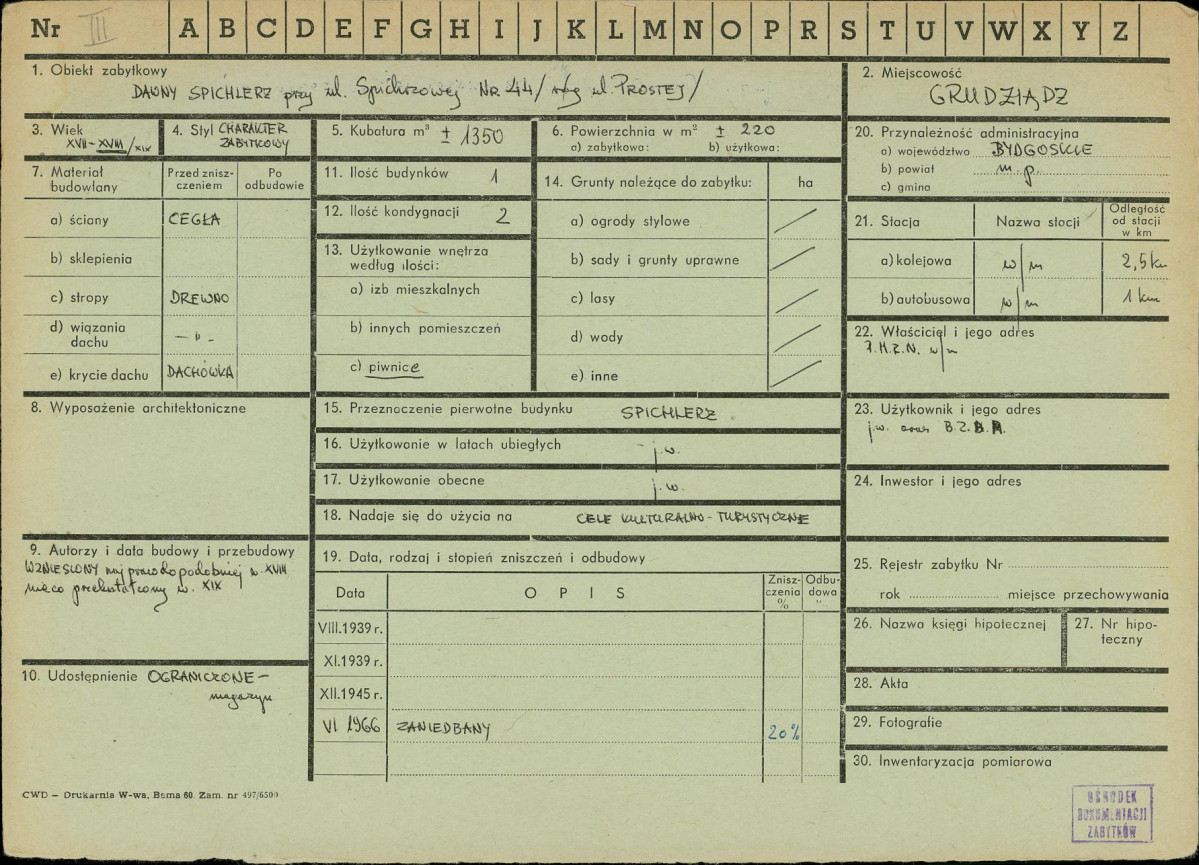 Nr III A B C D E F G H I J K L M N O P R S T U V W X Y Z
1. Obiekt zabytkowy
DAWNY SPICHLERZ przy ul. Spichrzowej NR 44/ róg ul. PROSTEJ/
2. Miejscowość
GRUDZIĄDZ
3. Wiek
XVII-XVIII/XIX
4. Styl CHARAKTER
ZABYTKOWY
5. Kubatura m³ ± 1350
6. Powierzchnia w m² ± 220
a) zabytkowa: b) użytkowa:
7. Materiał
budowlany
Przed znisz-
czeniem
Po
odbudowie
a) ściany CEGŁA
b) sklepienia
c) stropy DREWNO
d) wiązania
dachu
— " -
e) krycie dachu DACHÓWKA
8. Wyposażenie architektoniczne
9. Autorzy i data budowy i przebudowy
WZNIESIONY najprawdopodobniej w. XVIII
nieco przekształcony w. XIX
10. Udostępnienie OGRANICZONE -
magazyn
11. Ilość budynków 1
12. Ilość kondygnacji 2
13. Użytkowanie wnętrza
według ilości:
a) izb mieszkalnych
b) innych pomieszczeń
c) piwnice
14. Grunty należące do zabytku: ha
a) ogrody stylowe
b) sady i grunty uprawne
c) lasy
d) wody
e) inne
15. Przeznoczenie pierwotne budynku SPICHLERZ
16. Użytkowanie w latach ubiegłych - j.w.
17. Użytkowanie obecne j.w.
18. Nadaje się do użycia na CELE KULTURALNO-TURYSTYCZNE
19. Data, rodzaj i stopień zniszczeń i odbudowy
Data OPIS
Znisz-
czenia
%
Odbu-
dowa
"
VIII.1939 r.
XI.1939 r.
XII.1945 r.
VI 1966 ZANIEDBANY 20%
20. Przynależność administracyjna
a) województwo BYDGOSKIE
b) powiat m.p.
c) gmina
21. Stacja Nazwa stacji
Odległość
od stacji
w km
a) kolejowa w/m 2,5 km
b) autobusowa w/m 1 km
22. Właściciel i jego adres
P.H.Z.N. w/m
23. Użytkownik i jego adres
j.w. oraz
24. Inwestor i jego adres
25. Rejestr zabytku Nr
rok miejsce przechowywania
26. Nazwa księgi hipotecznej
27. Nr hipo-
teczny
28. Akta
29. Fotografie
30. Inwentaryzacja pomiarowa
CWD — Drukarnia W-wa, Bema 60. Zam. nr 497/6500
OŚRODEK
DOKUMENTACJI
ZABYTKÓW